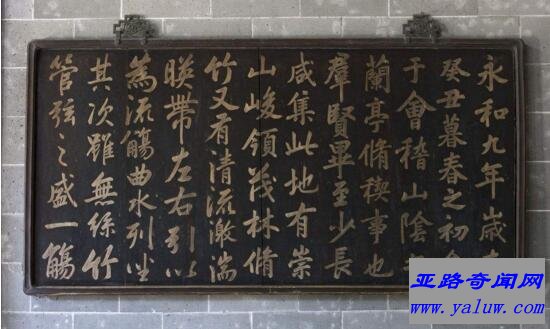 永和九年歲
癸丑暮春之初
于會稽山陰
蘭亭脩禊事也
羣賢畢至少長
咸集此地有崇
山峻領茂林脩
竹又有清流激湍
暎帶左右引以
為流觴曲水列坐
其次雖無絲竹
管弦之盛一觴
亚路奇闻网
www.yaluw.com